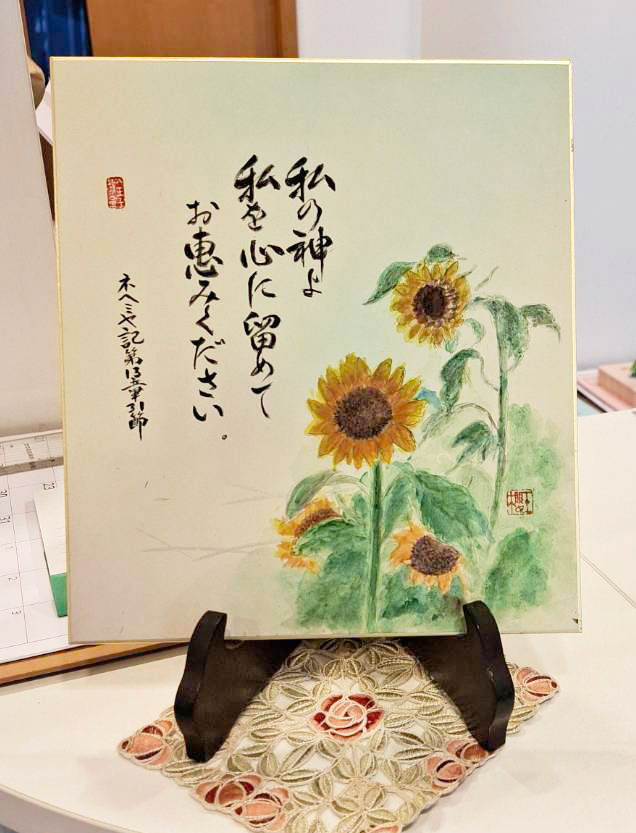 私の神よ
私を心に留めて
お恵みください。
ネヘミヤ記第13章31節